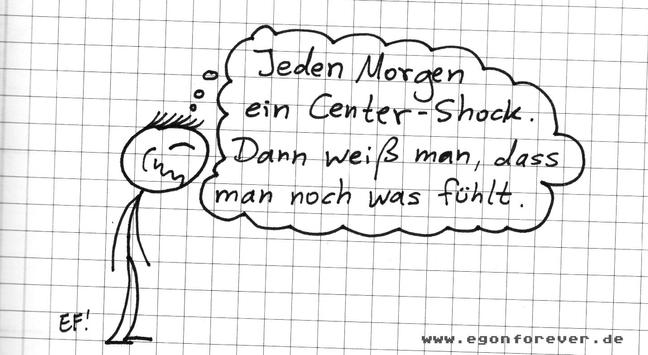 Jeden Morgen
ein Center-Shock.
Dann weiß man, dass
man noch was fühlt.
EF!
www.egonforever.de